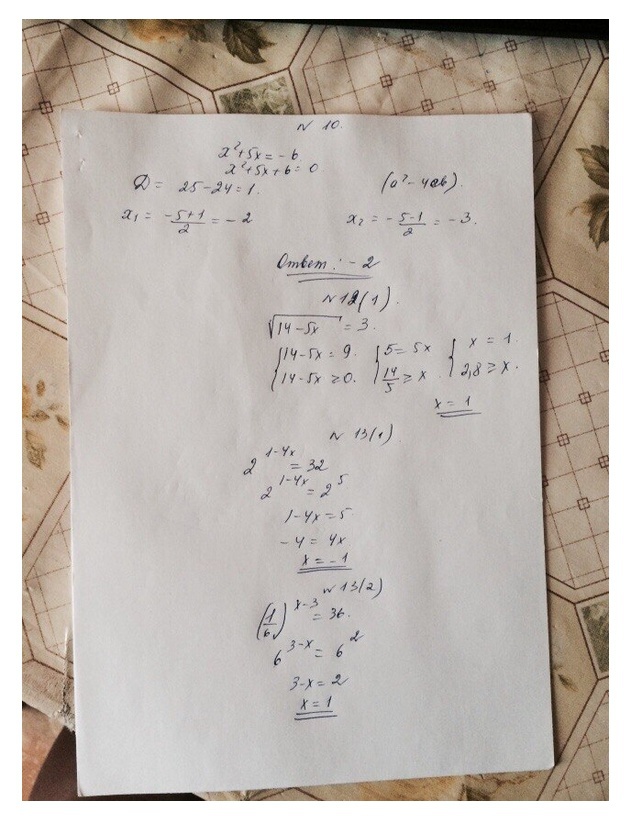 N 10.
x²+5x=-6.
x²+5x+6=0
D= 25-24=1. (a²-4ab).
x₁ = (-5+1)/2 = -2 x₂ = -(5-1)/2 = -3.
Ответ: -2
N 12(1).
√(14-5x) = 3.
{14-5x=9. {5=5x {x=1.
{14-5x≥0. {14/5≥x. {2,8≥x.
x=1
N 13(1)
2^(1-4x)=32
2^(1-4x)=2^5
1-4x=5
-4=4x
x=-1
N 13(2)
(1/6)^(x-3)=36.
6^(3-x)=6^2
3-x=2
x=1